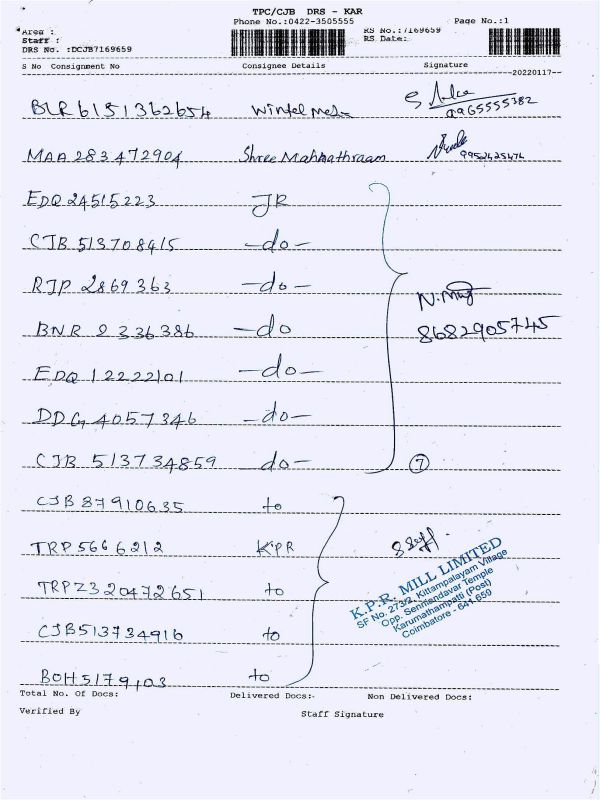 TPC/CJB DRS - KAR
Phone No.:0422-3505555 Page No.:1
Area :
Staff :
DRS No. :DCJB7169659
RS No.:7169659
RS Date:
S No Consignment No Consignee Details Signature
20220117
BLR6151362654 Wintel 9965555382
MAA 283472904 Shree 9952425474
EDQ 24515223 JR
CJB 513708415 -do-
RJP 2869363 -do-
BNR 2336386 -do
8682905745
EDQ 12222101 -do-
DDG 4057346 -do-
CJB 513734859 -do- 7
CJB 87910635 to
TRP 5666212 KPR
TRPZ320472651 to
CJB513734916 to
BOH 5179103 to
K.P.R. MILL LIMITED
SF No. 273/2, Kittampalayam Village
Opp. Senniandavar Temple
Karumathampatti (Post)
Coimbatore - 641 659
Total No. Of Docs: Delivered Docs:- Non Delivered Docs:
Verified By Staff Signature